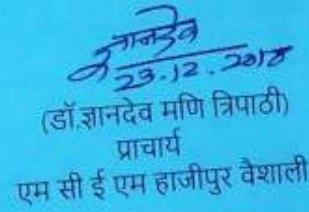 ज्ञानदेव
23.12.2018
(डॉ.ज्ञानदेव मणि त्रिपाठी)
प्राचार्य
एम सी ई एम हाजीपुर वैशाली